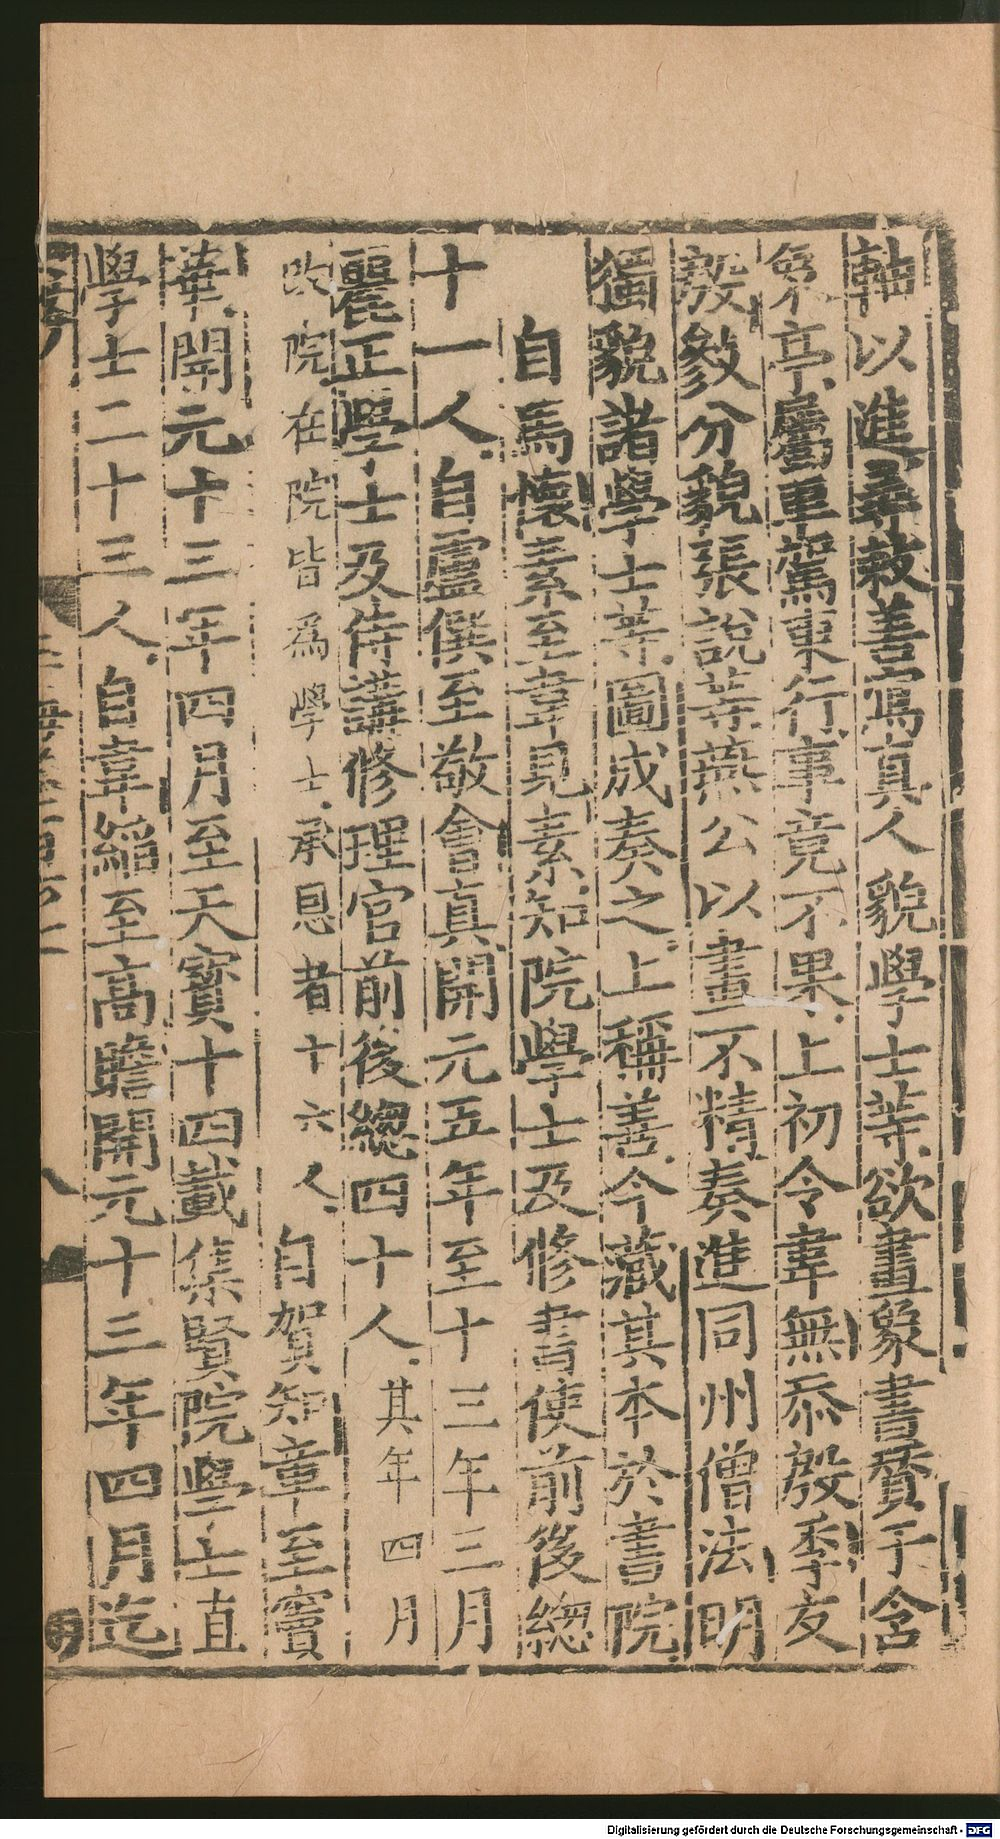 軸以進尋敕善寫真人貌學士等欲畫象書贊于含
象亭屬車駕東行事竟不果上初令韋無忝殷季友
殷敘分貌張說等燕公以畫不精奏進同州僧法明
獨貌諸學士等圖成奏之上稱善今藏其本於書院
自馬懷素至韋見素知院學士及修書使前後總
十一人自盧僎至敬會真開元五年至十三年三月
麗正學士及侍講修理官前後總四十人其年四月
改院在院皆爲學士承恩者十六人自賀知章至竇
華開元十三年四月至天寶十四載集賢院學士直
學士二十三人自韋縚至高瞻開元十三年四月迄
Digitalisierung gefördert durch die Deutsche Forschungsgemeinschaft - DFG